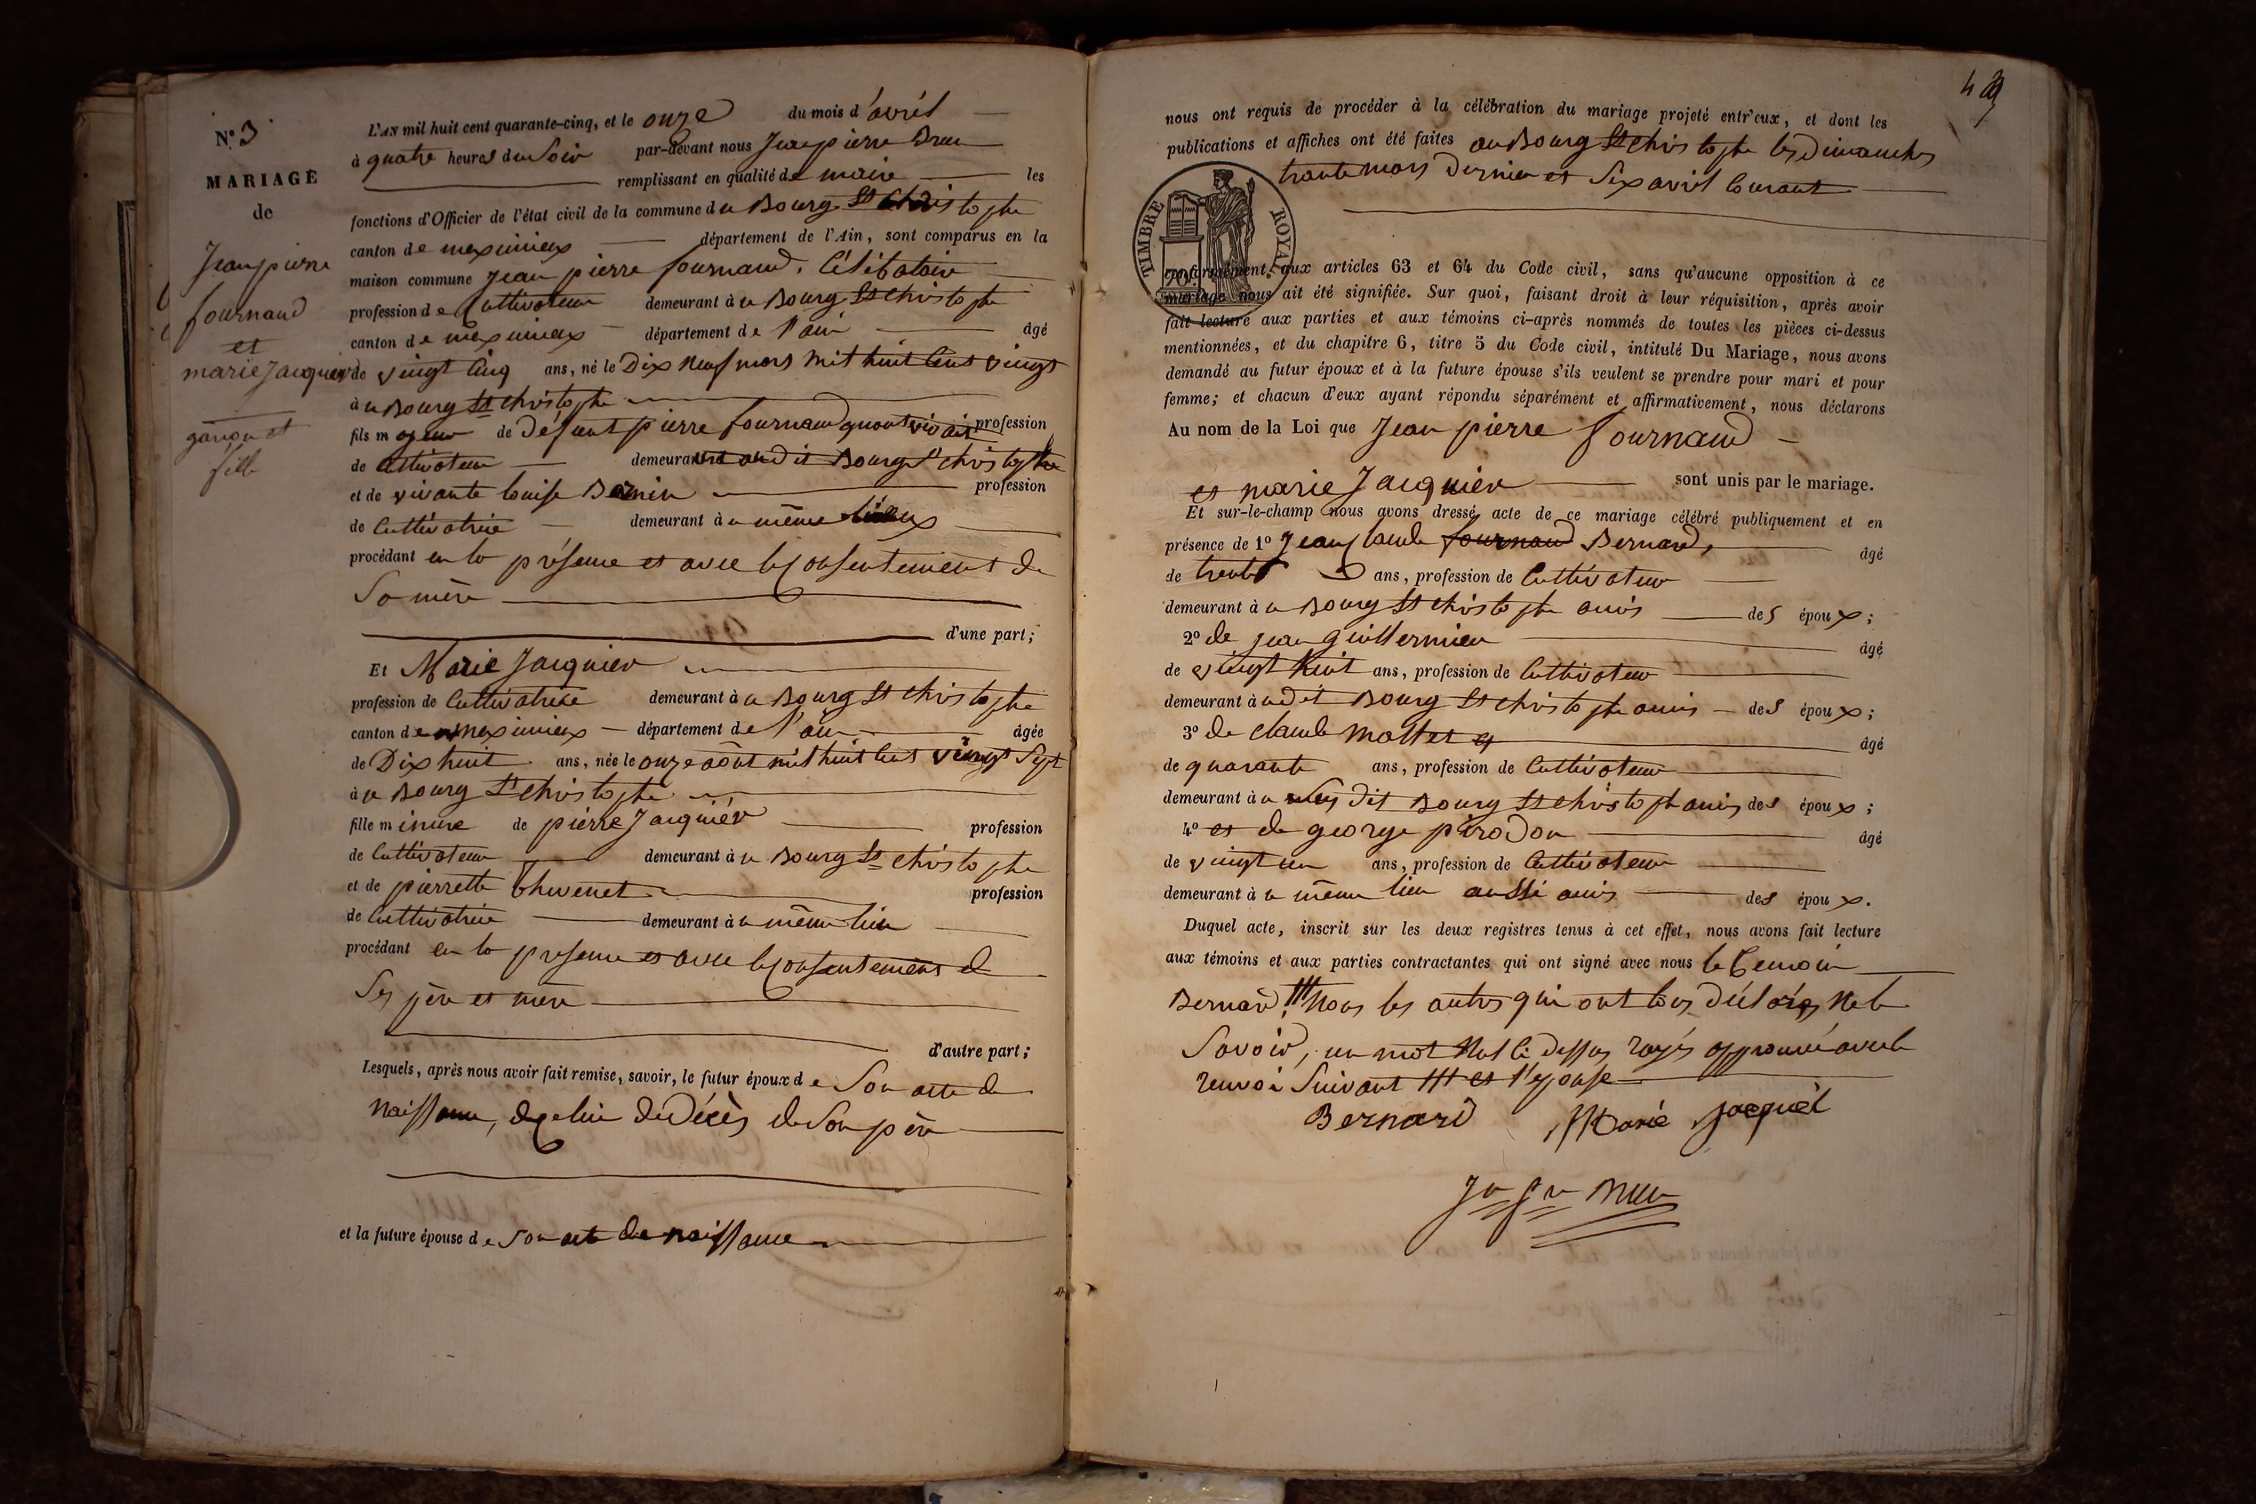 N.o 3
MARIAGE
de
Jean pierre
fournand
et
marie Jacquier
garçon et
fille
L'AN mil huit cent quarante-cinq, et le onze du mois d'avril
à quatre heures du Soir par-devant nous Jean pierre
remplissant en qualité de maire les
fonctions d'Officier de l'état civil de la commune du Bourg St Christophe
canton de meximieux département de l'Ain, sont comparus en la
maison commune Jean pierre fournand, Célibataire
profession de Cultivateur demeurant à u Bourg St christophe
canton de meximieux département de l'ain âgé
de vingt Cinq ans, né le Dix neuf mars mil huit Cent vingt
à u Bourg St christophe
fils majeur de défunt pierre fournand quand vivait profession
de Cultivateur demeurant audit Bourg St christophe
et de vivante louise profession
de Cultivatrice demeurant à u même lieux
procédant en la présence et avec le consentement de
Sa mère
d'une part;
Et Marie Jacquier
profession de Cultivatrice demeurant à u Bourg St christophe
canton de meximieux département de l'ain âgée
de Dix huit ans, née le onze août mil huit Cent vingt Sept
à u Bourg St christophe
fille mineure de pierre Jacquier profession
de Cultivateur demeurant à u Bourg St christophe
et de pierrette thevenet profession
de Cultivatrice demeurant à u même lieu
procédant en la présence et avec le consentement de
Ses père et mère
d'autre part;
Lesquels, après nous avoir fait remise, savoir, le futur époux de Son acte de
Naissance, de celui de Décès de Son père
et la future épouse de Son acte de naissance
49
nous ont requis de procéder à la célébration du mariage projeté entr'eux, et dont les
publications et affiches ont été faites au Bourg St christophe les Dimanches
trente mars Dernier et Six avril Courant
TIMBRE ROYAL
70
conformément, aux articles 63 et 64 du Code civil, sans qu'aucune opposition à ce
mariage nous ait été signifiée. Sur quoi, faisant droit à leur réquisition, après avoir
fait lecture aux parties et aux témoins ci-après nommés de toutes les pièces ci-dessus
mentionnées, et du chapitre 6, titre 5 du Code civil, intitulé Du Mariage, nous avons
demandé au futur époux et à la future épouse s'ils veulent se prendre pour mari et pour
femme; et chacun d'eux ayant répondu séparément et affirmativement, nous déclarons
Au nom de la Loi que Jean pierre fournand
et marie Jacquier sont unis par le mariage.
Et sur-le-champ nous avons dressé acte de ce mariage célébré publiquement et en
présence de 1º Jean Claude fournand Bernard, âgé
de trente ans, profession de Cultivateur
demeurant à u Bourg St christophe amis des époux;
2º de jean guillermier âgé
de vingt huit ans, profession de Cultivateur
demeurant à udit Bourg St christophe amis des époux;
3º de claude mollet âgé
de quarante ans, profession de Cultivateur
demeurant à u dit Bourg St christophe amis des époux;
4º et de george pirodon âgé
de vingt un ans, profession de Cultivateur
demeurant à u même lieu aussi amis des époux.
Duquel acte, inscrit sur les deux registres tenus à cet effet, nous avons fait lecture
aux témoins et aux parties contractantes qui ont signé avec nous le témoin
Bernard, Non les autres qui ont tous déclarés Ne le
Savoir, un mot Nul Ci dessus rayés approuvé avec le
renvoi Suivant et l'épouse
Bernard Marie jacquèl